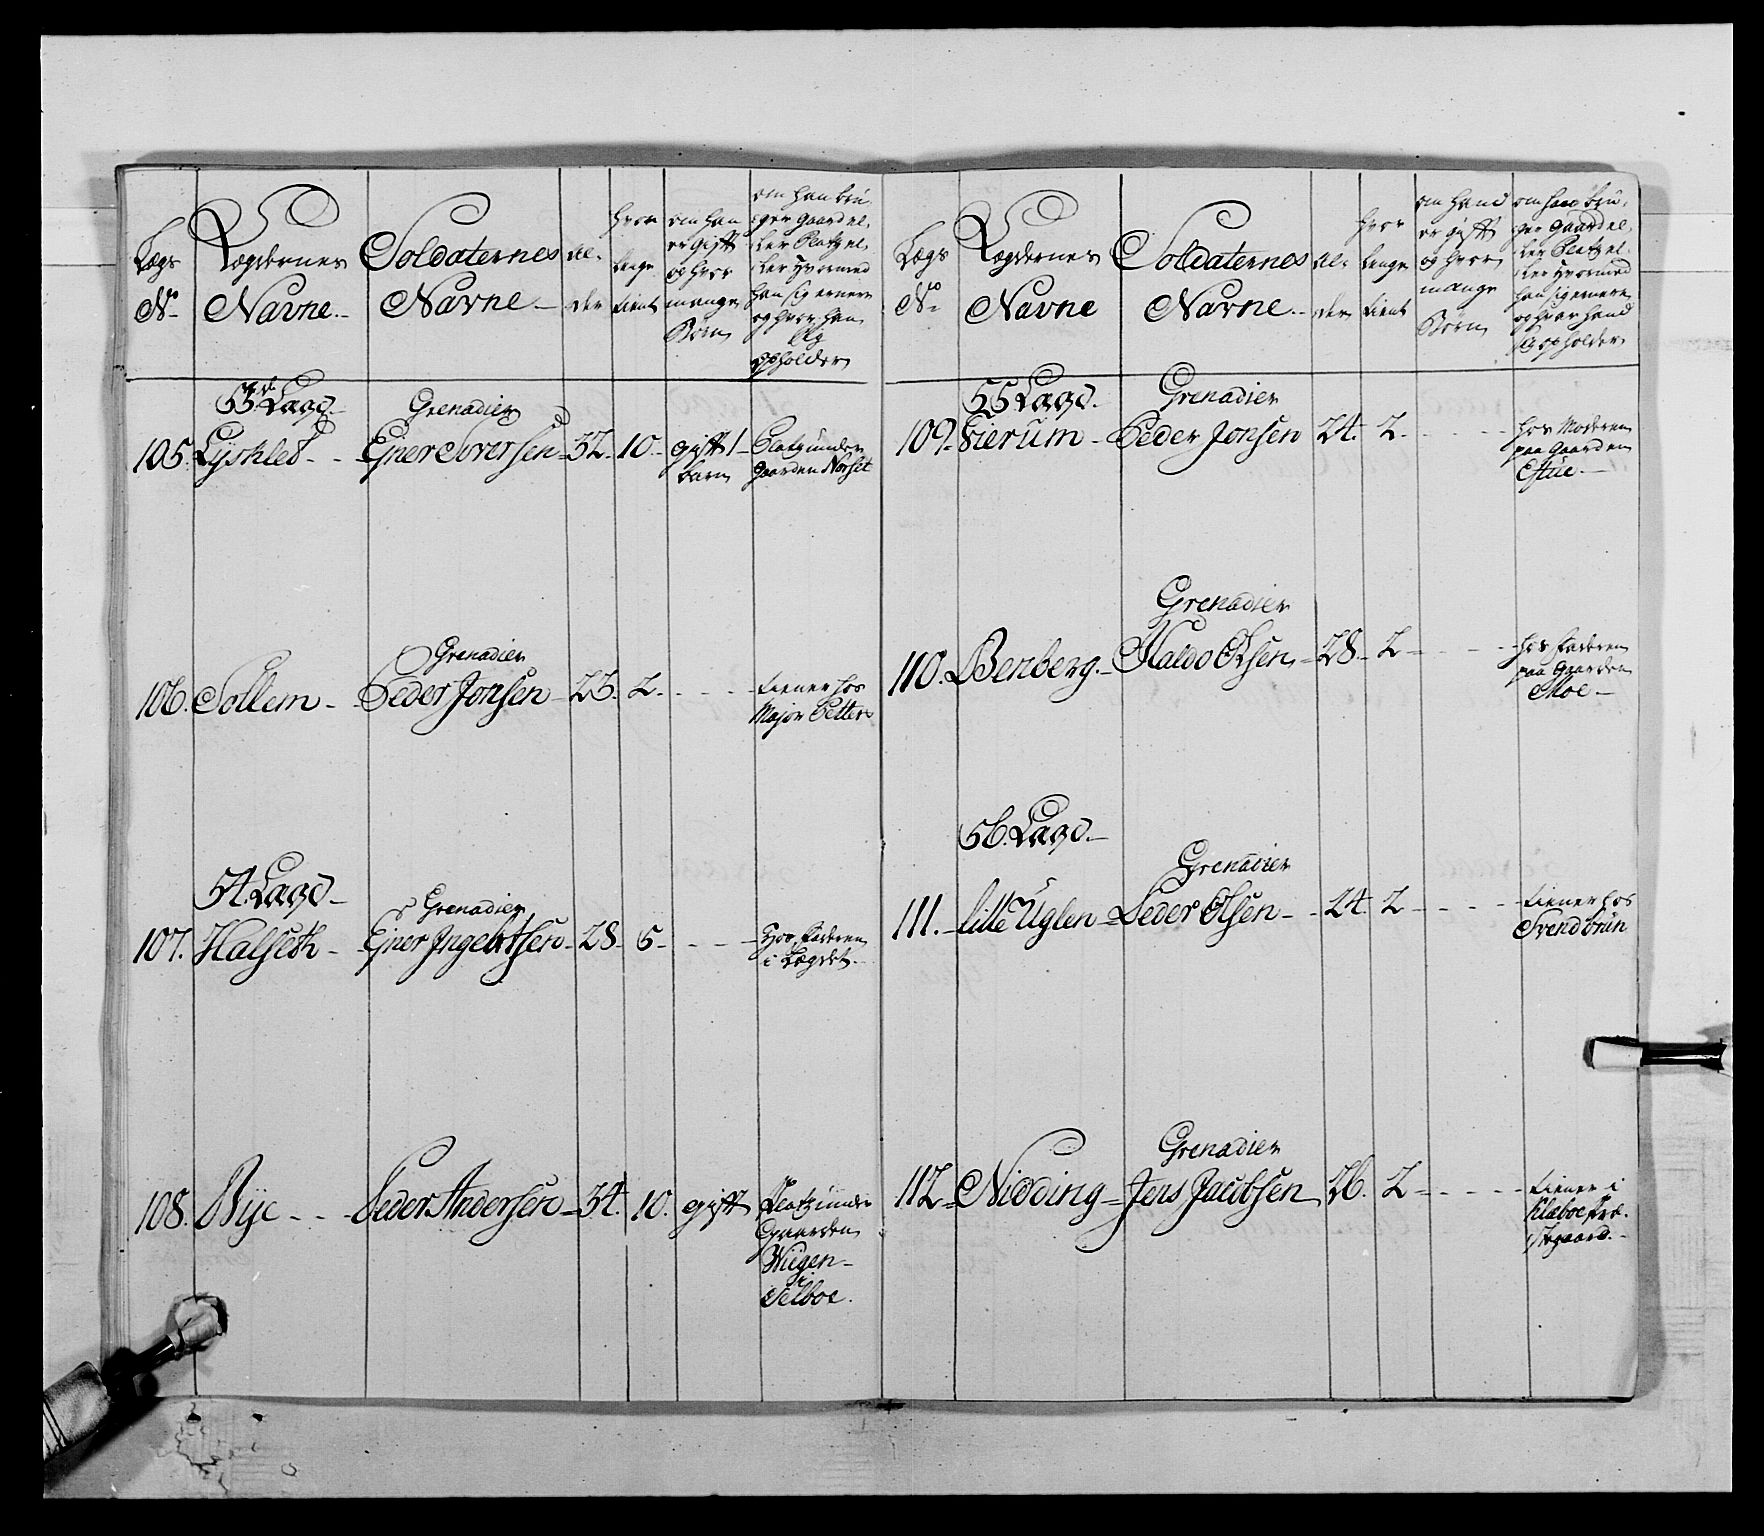 Lægs
No
Lægdernes
Navne.
Soldaternes
Navne
Al-
der
hvor
lenge
tient
om han
er gift
og hvor
mange
Børn
om han bru-
ger gaard el-
ler Platz el-
ler hvormed
han sig ernerer
og hvor han
sig
opholder
53de Lægd.
Grenadier
105. Lysklet - Ejner Iversen - 32. 10. gift 1 barn
Platz under
Gaarden Norset
Grenadier
106. Sollem - Peder Jonsen - 23. 2.
tiener hos
Major Petters
54. Lægd
Grenadier
107. Halseth - Ejner Ingebrtsen - 28 - 5 -
Hos Faderen
i Lægdet.
108. Bye - Peder Andersen - 34. 10. gift
Platz under
Gaarden
Wiigen
i
Selboe.
Lægs
No
Lægdernes
Navne
Soldaternes
Navne.
Al-
der
hvor
lenge
tient
om hand
er gift
og hvor
mange
Børn
om hand bru-
ger Gaard el-
ler Platz el-
ler hvormed
han sig ernerer
og hvor hand
sig opholder
55 Lægd.
Grenadier
109. Fierum - Peder Jonsen 24. 2.
hos Moderen
paa Gaarden
Estue.
Grenadier
110. Benberg. - Haldo Olsen - 28. 2
hos Faderen
paa Gaarden
Moe -
56. Lægd
Grenadier
111. - lille Uglen - Peder Olsen - 24. 2
tiener hos
Svend brun
Grenadier
112 - Nidding - Jens Jacobsen 26. 2
tiener i
Klæboe Præ-
stegaard.